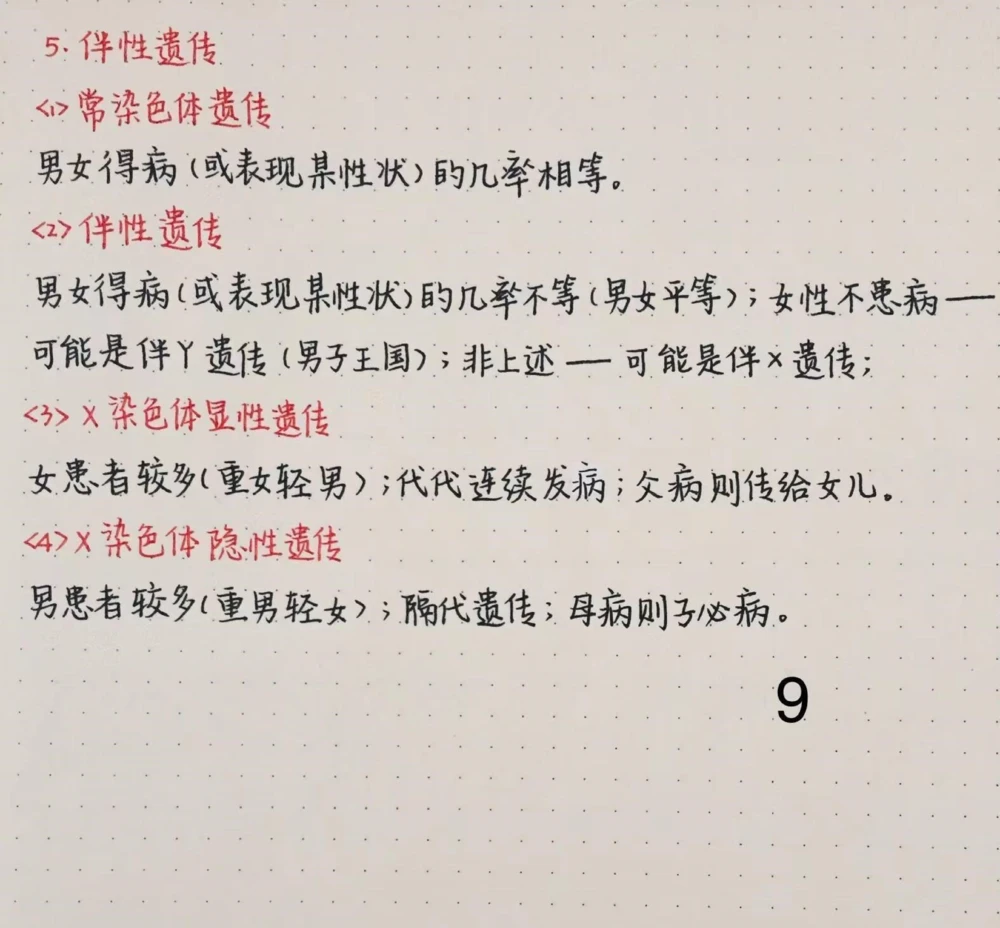 5. 伴性遗传
<1> 常染色体遗传
男女得病(或表现某性状)的几率相等。
<2> 伴性遗传
男女得病(或表现某性状)的几率不等(男女平等)；女性不患病——
可能是伴Y遗传(男子王国)；非上述——可能是伴X遗传；
<3> X染色体显性遗传
女患者较多(重女轻男)；代代连续发病；父病则传给女儿。
<4> X染色体隐性遗传
男患者较多(重男轻女)；隔代遗传；母病则子必病。
9